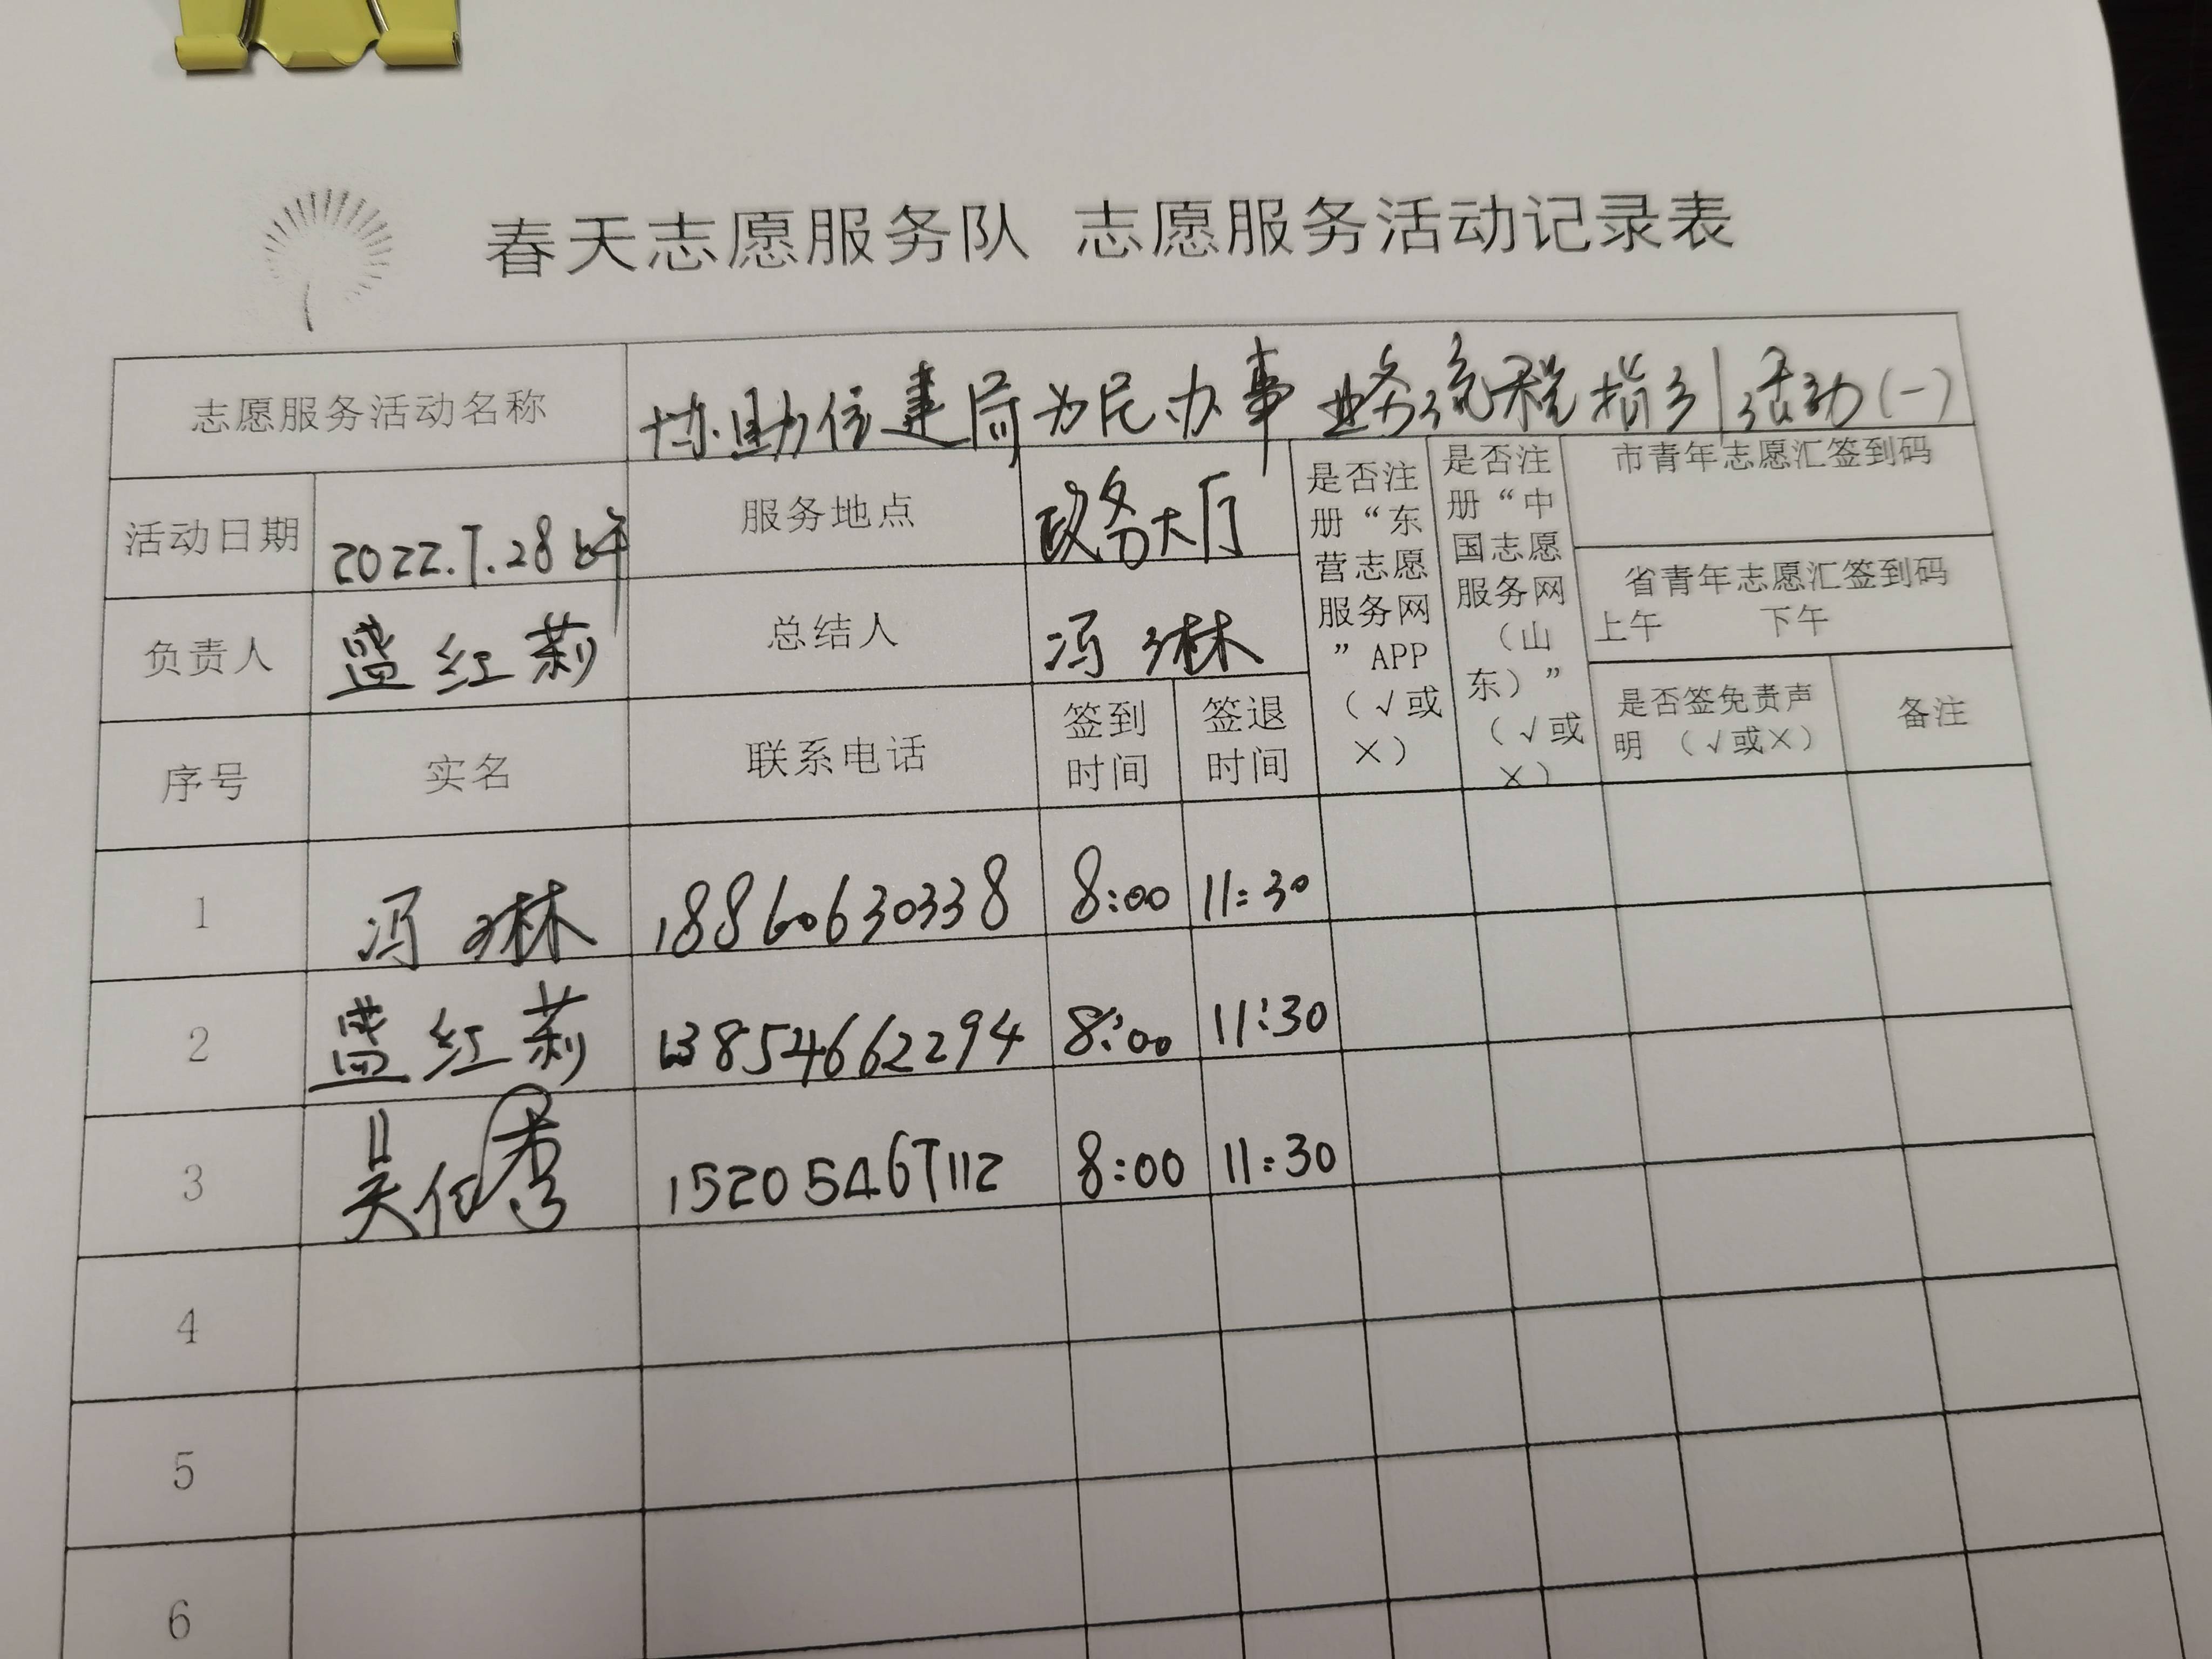 春天志愿服务队 志愿服务活动记录表
志愿服务活动名称 协助住建局为民办事业务流程指引活动(一)
活动日期 2022.7.28上午 服务地点 政务大厅
负责人 盛红莉 总结人 冯琳
序号 实名 联系电话 签到时间 签退时间
是否注册“东营志愿服务网”APP（√或×）
是否注册“中国志愿服务网（山东）”（√或×）
市青年志愿汇签到码
省青年志愿汇签到码
上午 下午
是否签免责声明（√或×） 备注
1 冯琳 18860630338 8:00 11:30
2 盛红莉 13854662294 8:00 11:30
3 吴 秀 15205467112 8:00 11:30
4
5
6